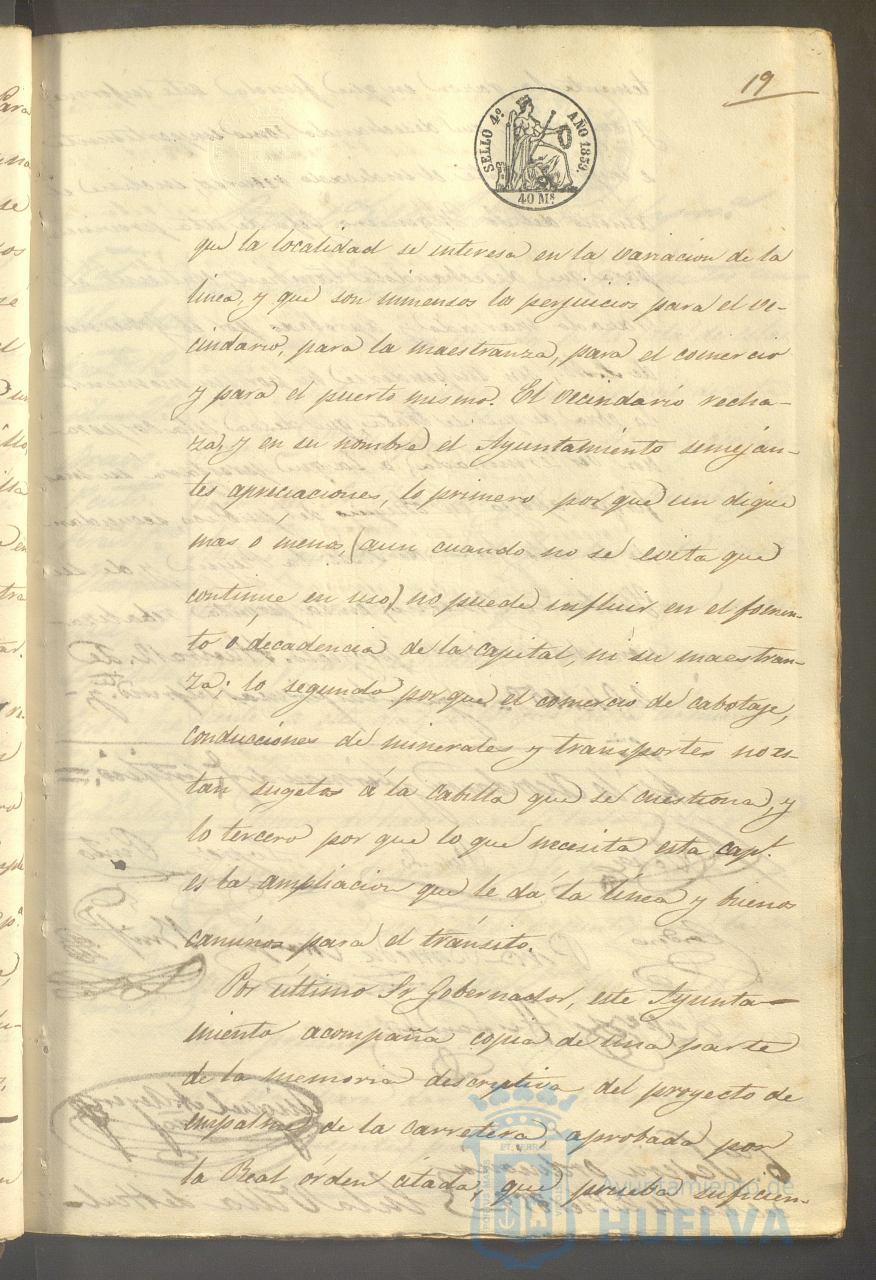 19
SELLO 4º AÑO 1859.
40 Ms
que la localidad se interesa en la variacion de la
linea, y que son inmensos los perjuicios para el ve-
cindario, para la maestranza, para el comercio
y para el puerto mismo. El vecindario recha-
za, y en su nombre el Ayuntamiento semejan-
tes apreciaciones, lo primero por que un dique
mas ó menos, (aun cuando no se evita que
continue en uso) no puede influir en el fomen-
to ó decadencia de la capital, ni su maestran-
za; lo segundo por que el comercio de cabotaje,
conducciones de minerales y transportes no es-
tan sugetos á la cabilla que se cuestiona, y
lo tercero por que lo que necesita esta capl.
es la ampliacion que le dá la línea y buenos
caminos para el tránsito.
Por último Sr Gobernador, este Ayunta-
miento acompaña copia de una parte
de la memoria descriptiva del proyecto de
empalme de la carretera aprobada por
la Real órden citada, que prueba suficien-
Ayuntamiento de
HUELVA